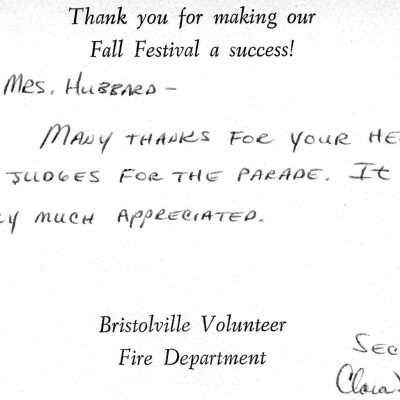 Thank you for making our
Fall Festival a success!
Mrs. Hubbard –
Many thanks for your
judges for the parade. It
much appreciated.
Bristolville Volunteer
Fire Department
Clara